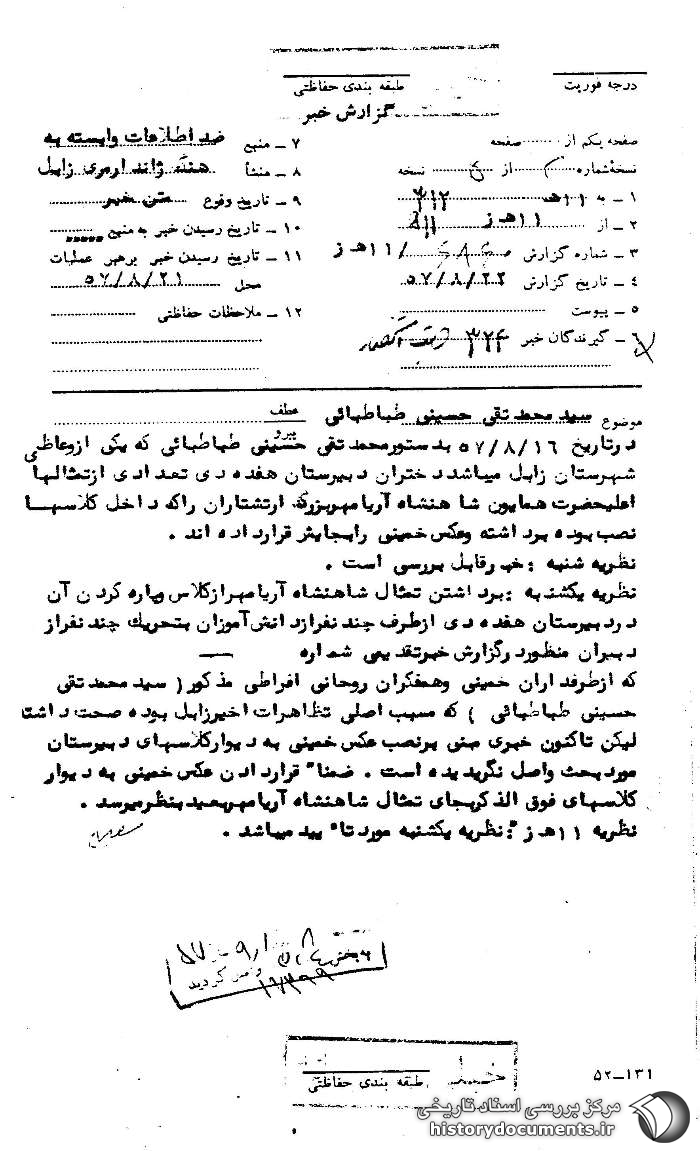 درجه فوریت
طبقه بندی حفاظتی
گزارش خبر
صفحه یکم از صفحه
نسخه‌شماره از نسخه
۱ـ به ۱۱هـ ۳۱۲
۲ـ از ۱۱هـ ز
۳ـ شماره گزارش /۱۱هـ ز
۴ـ تاریخ گزارش ۵۷/۸/۲۲
۵ـ پیوست
۶ـ گیرندگان خبر ۳۲۴
۷ـ منبع ضد اطلاعات وابسته به
۸ـ منشأ هنگ ژاندارمری زابل
۹ـ تاریخ وقوع متن خبر
۱۰ـ تاریخ رسیدن خبر به منبع
۱۱ـ تاریخ رسیدن خبر برهبر عملیات
محل ۵۷/۸/۲۱
۱۲ـ ملاحظات حفاظتی
موضوع سید محمد تقی حسینی طباطبائی
عطف
پیرو
درتاریخ ۵۷/۸/۱۶ بدستورمحمدتقی حسینی طباطبائی که یکی ازوعاظی
شهرستان زابل میباشد دختران دبیرستان هفده دی تعدادی ازتمثالها
اعلیحضرت همایون شاهنشاه آریامهربزرگ ارتشتاران راکه داخل کلاسها
نصب بوده برداشته وعکس خمینی رابجایش قرارداده اند .
نظریه شنبه : خبرقابل بررسی است .
نظریه یکشنبه : برداشتن تمثال شاهنشاه آریامهرازکلاس وپاره کردن آن
دردبیرستان هفده دی ازطرف چند نفرازدانش‌آموزان بتحریک چند نفراز
دبیران منظوردرگزارش خبرتقدیمی شماره
که ازطرفداران خمینی وهمفکران روحانی افراطی مذکور( سید محمدتقی
حسینی طباطبائی ) که مسبب اصلی تظاهرات اخیرزابل بوده صحت داشته
لیکن تاکنون خبری مبنی برنصب عکس خمینی به دیوارکلاسهای دبیرستان
مورد بحث واصل نگردیده است . ضمنا" قراردادن عکس خمینی به دیوار
کلاسهای فوق الذکربجای تمثال شاهنشاه آریامهربعیدبنظرمیرسد .
نظریه ۱۱هـ ز : نظریه یکشنبه مورد تأ"یید میباشد .
گردید
طبقه بندی حفاظتی
۵۲ـ۱۳۱
مرکز بررسی اسناد تاریخی
historydocuments.ir